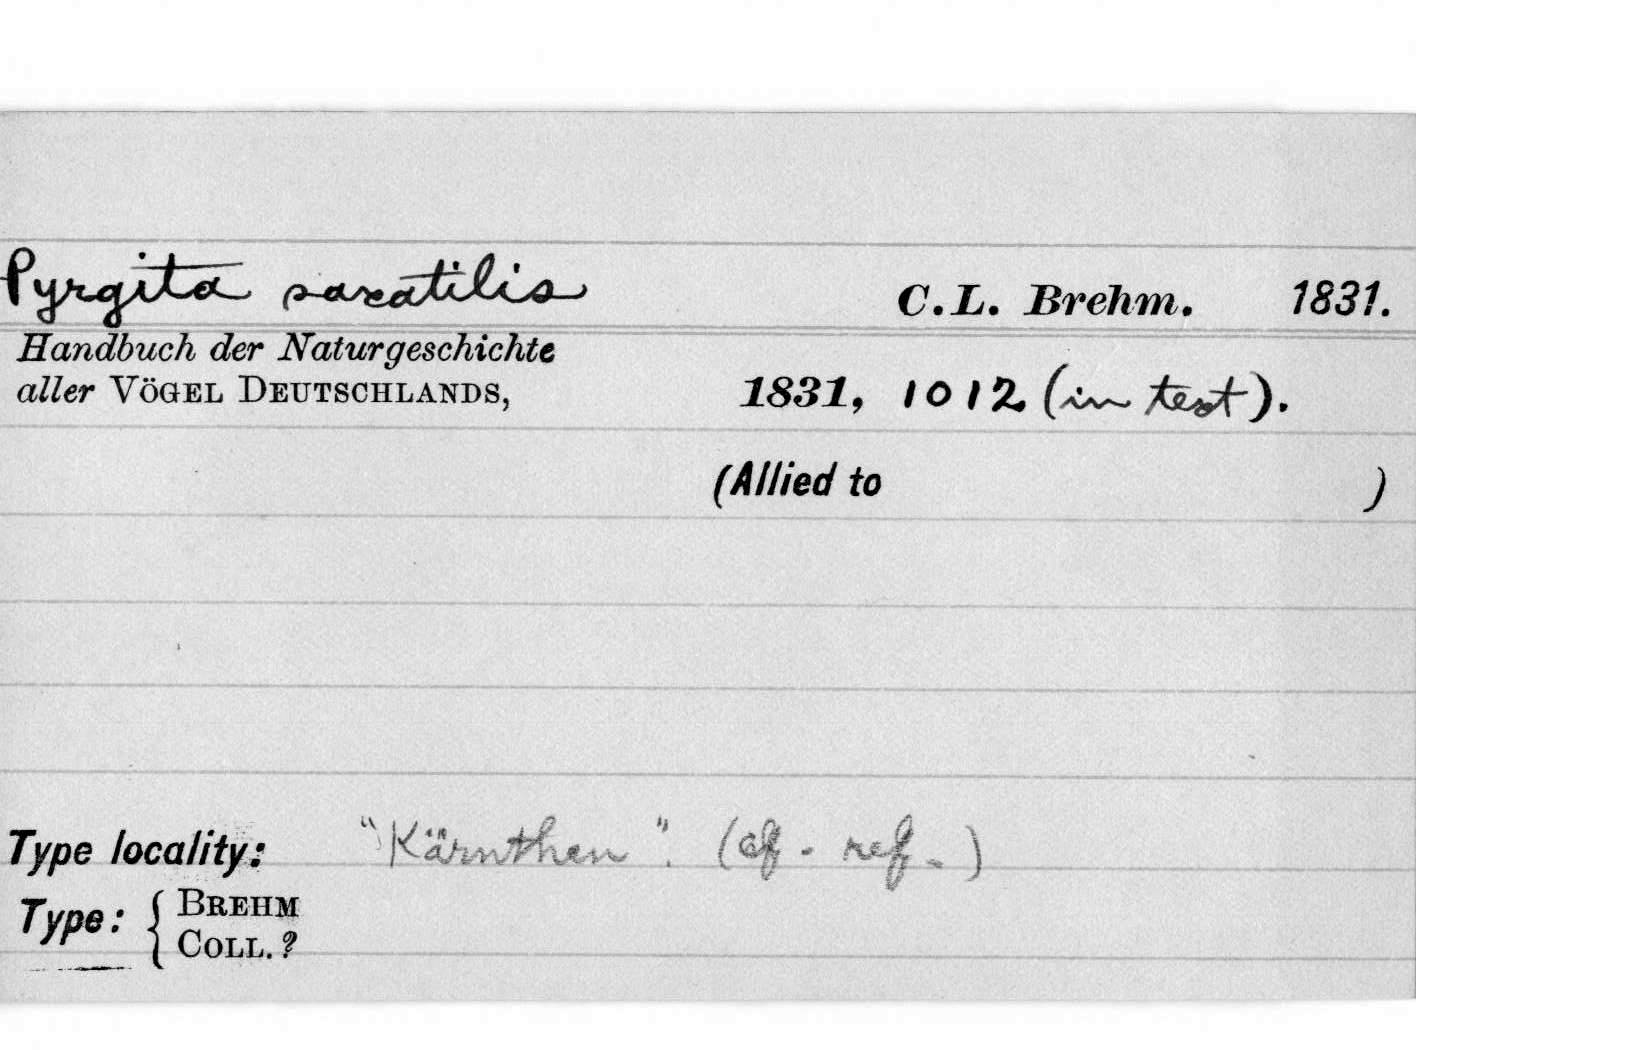 Pyrgita saxatilis C.L. Brehm. 1831.
Handbuch der Naturgeschichte
aller VÖGEL DEUTSCHLANDS, 1831, 1012 (in text).
(Allied to )
Type locality: "Kärnthen". (cf. ref.)
Type: { BREHM
COLL. ?